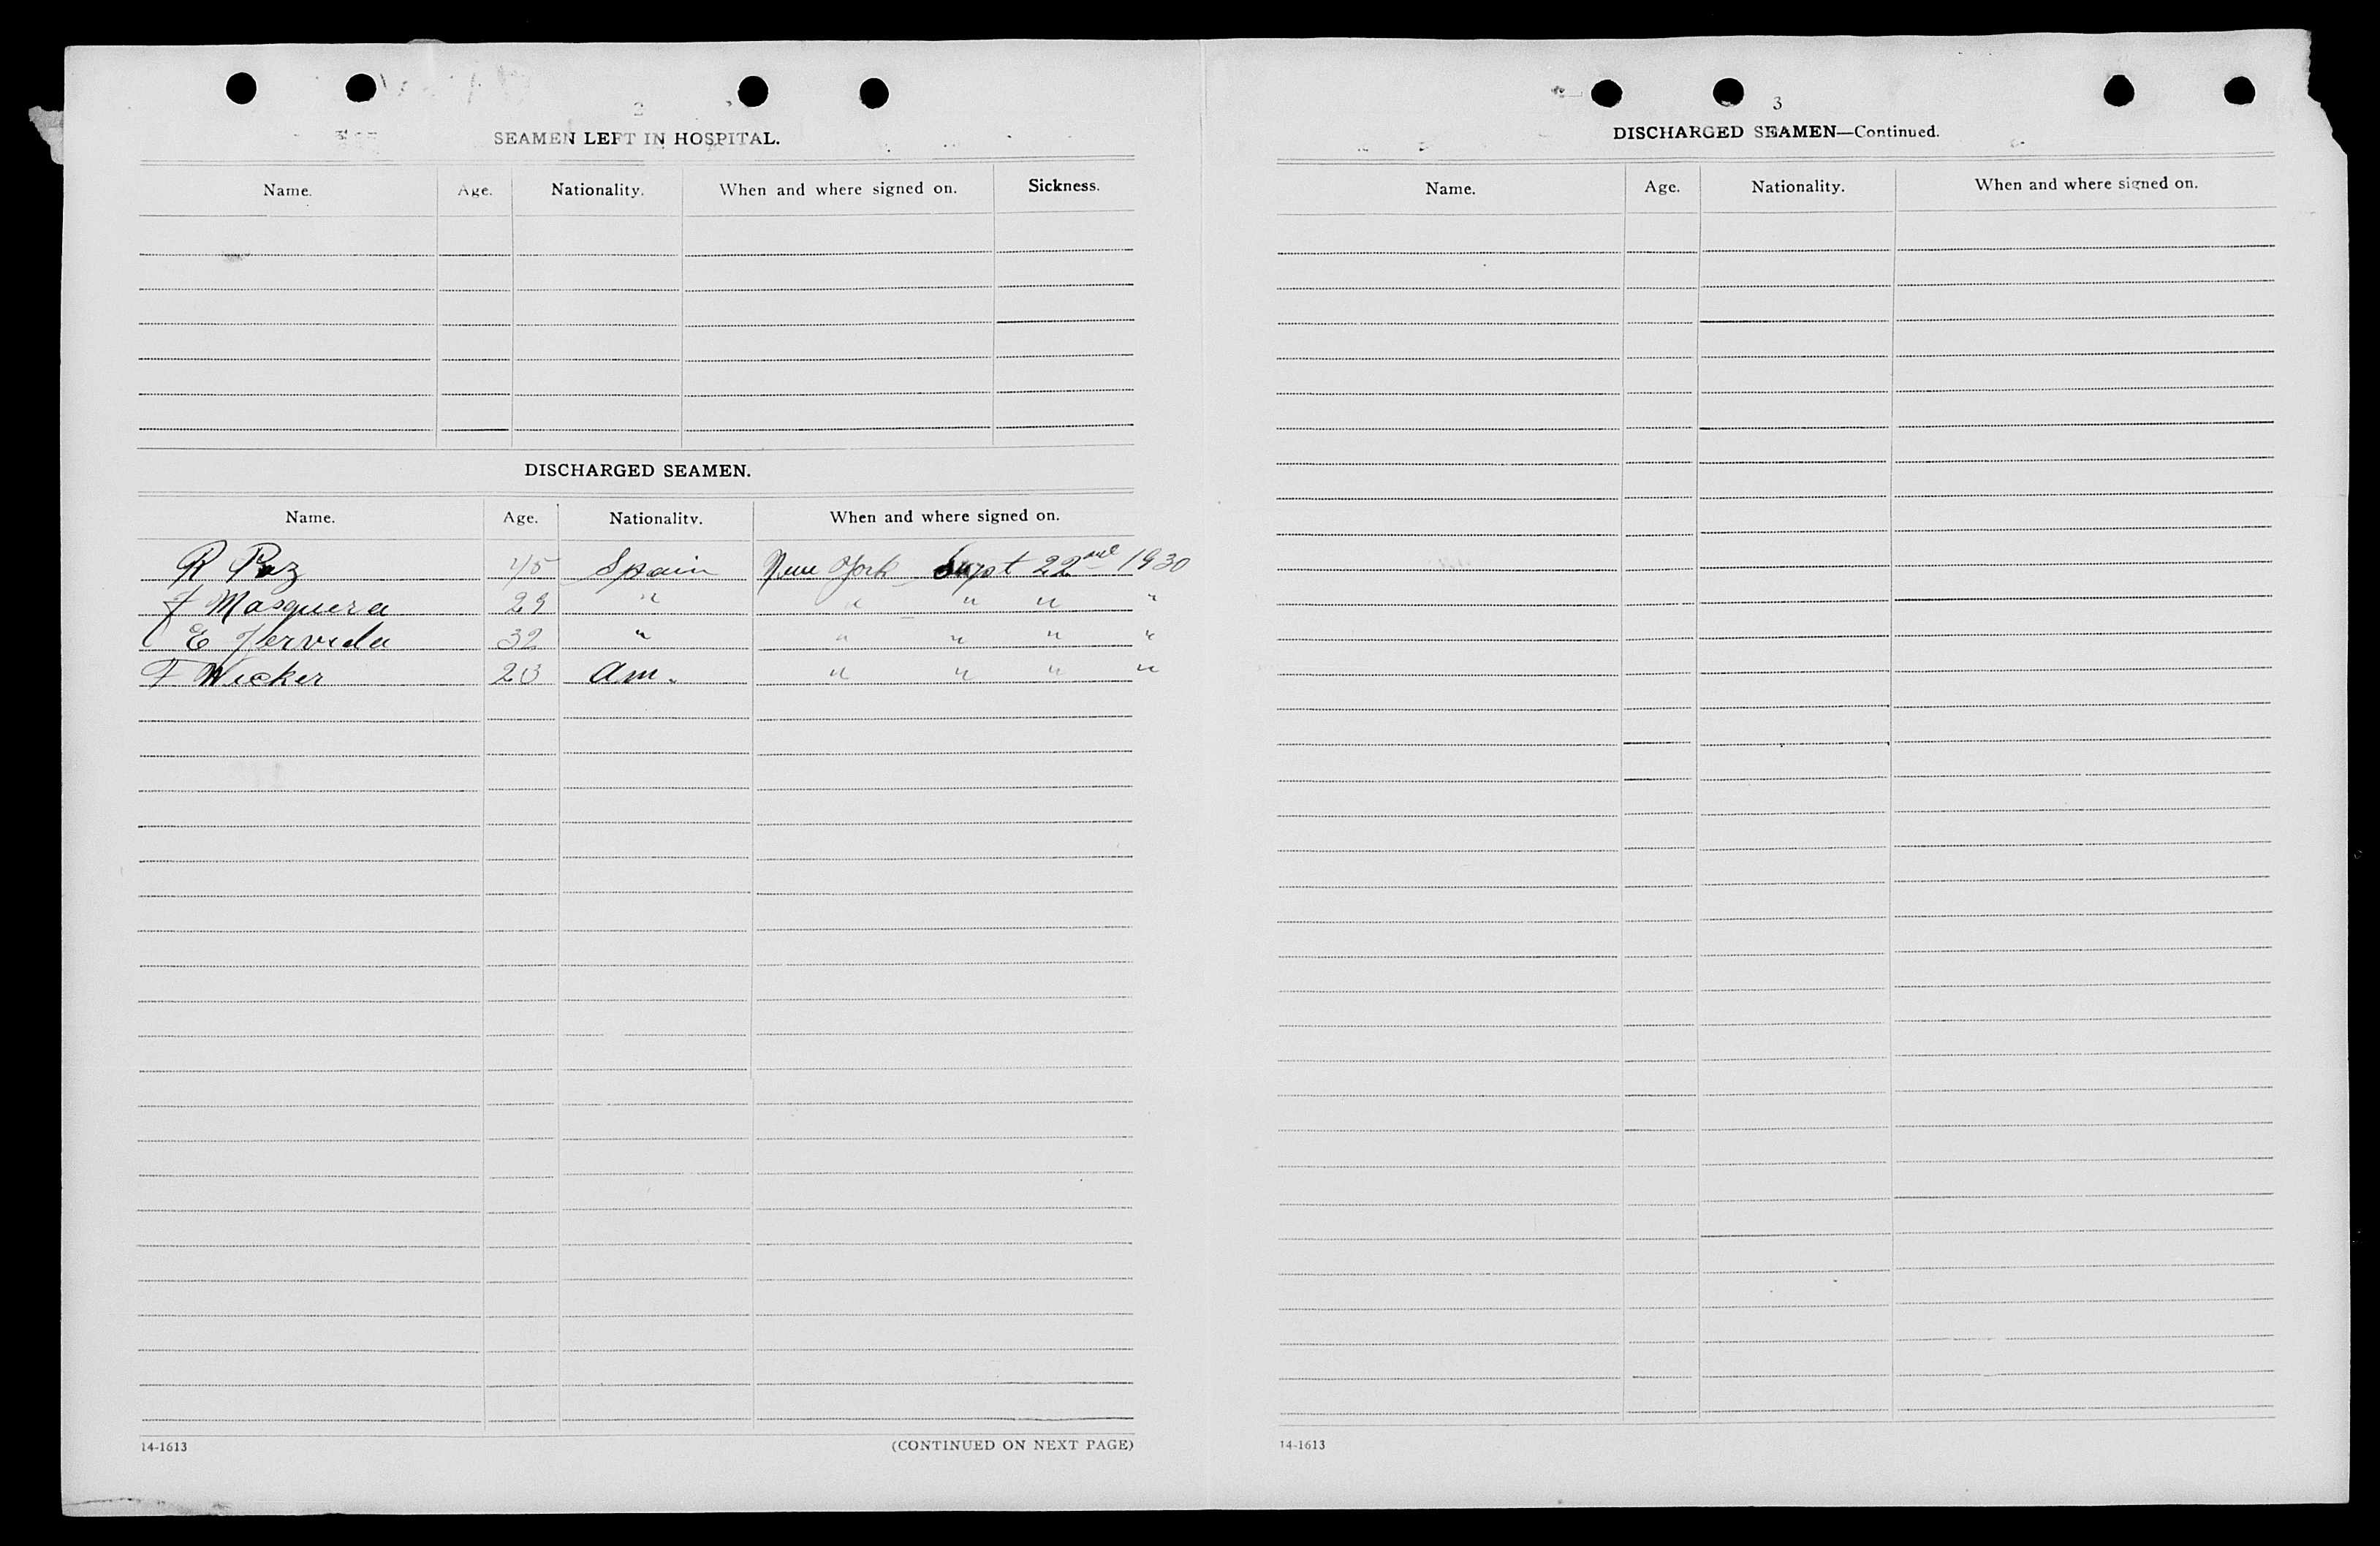 2
SEAMEN LEFT IN HOSPITAL.
Name. Age. Nationality. When and where signed on. Sickness.
DISCHARGED SEAMEN.
Name. Age. Nationality. When and where signed on.
R Paz 45 Spain New York Sept 22nd 1930
J Mosquera 29 " " " " "
E 32 " " " " "
F Wicker Am. " " " "
14-1613 (CONTINUED ON NEXT PAGE)
3
DISCHARGED SEAMEN—Continued.
Name. Age. Nationality. When and where signed on.
14-1613